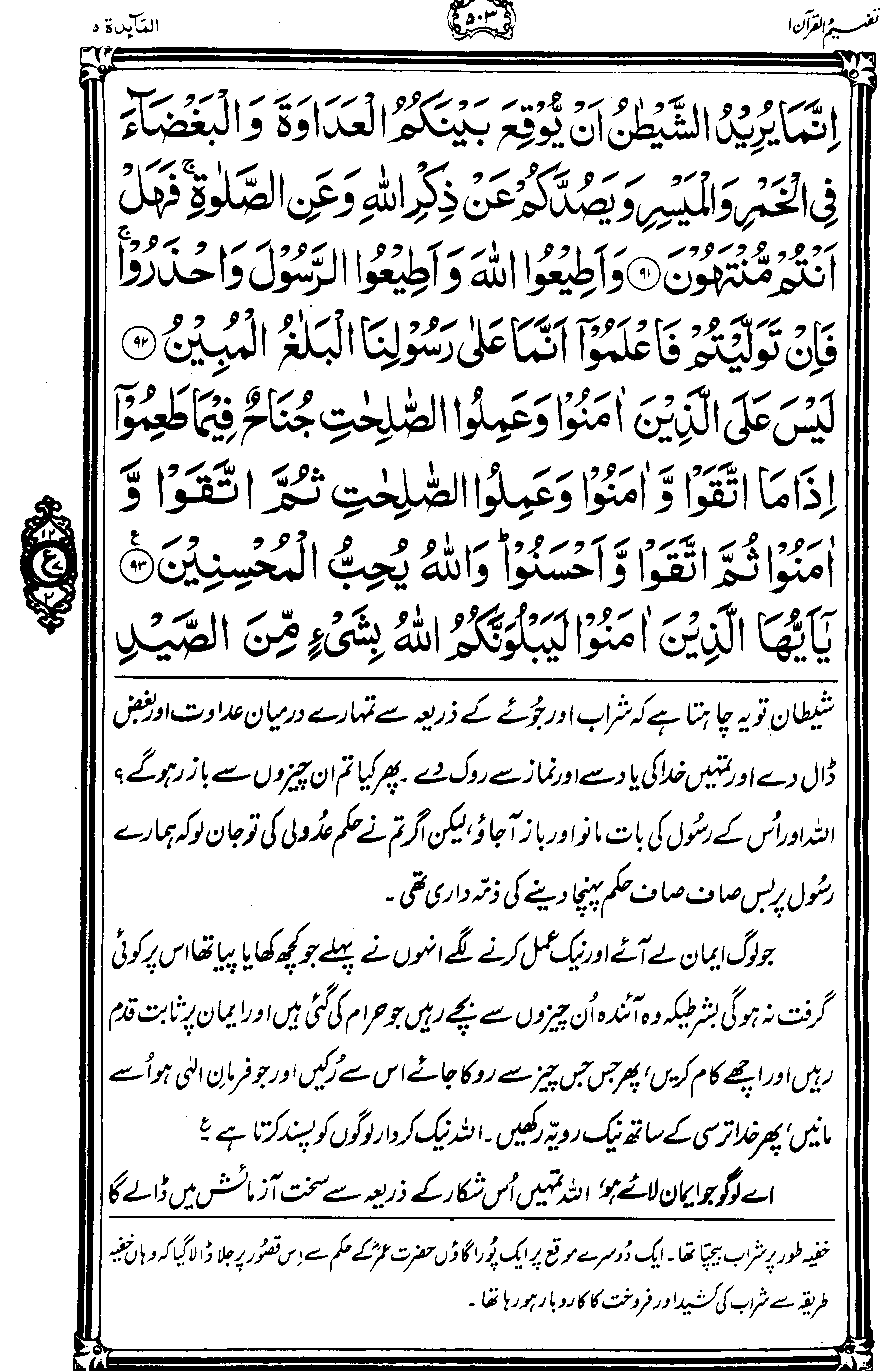 تفہیم القرآن ۱
۵۰۳
المآیدۃ ۵
اِنَّمَا يُرِيْدُ الشَّيْطٰنُ اَنْ يُّوْقِعَ بَيْنَكُمُ الْعَدَاوَةَ وَالْبَغْضَآءَ
فِي الْخَمْرِ وَالْمَيْسِرِ وَيَصُدَّكُمْ عَنْ ذِكْرِ اللّٰهِ وَعَنِ الصَّلٰوةِ ۚ فَهَلْ
اَنْتُمْ مُّنْتَهُوْنَ ﴿۹۱﴾ وَاَطِيْعُوا اللّٰهَ وَاَطِيْعُوا الرَّسُوْلَ وَاحْذَرُوْا ۚ
فَاِنْ تَوَلَّيْتُمْ فَاعْلَمُوْٓا اَنَّمَا عَلٰى رَسُوْلِنَا الْبَلٰغُ الْمُبِيْنُ ﴿۹۲﴾
لَيْسَ عَلَى الَّذِيْنَ اٰمَنُوْا وَعَمِلُوا الصّٰلِحٰتِ جُنَاحٌ فِيْمَا طَعِمُوْٓا
اِذَا مَا اتَّقَوْا وَّاٰمَنُوْا وَعَمِلُوا الصّٰلِحٰتِ ثُمَّ اتَّقَوْا وَّ
اٰمَنُوْا ثُمَّ اتَّقَوْا وَّاَحْسَنُوْا ؕ وَاللّٰهُ يُحِبُّ الْمُحْسِنِيْنَ ﴿۹۳﴾ ع
يٰٓاَيُّهَا الَّذِيْنَ اٰمَنُوْا لَيَبْلُوَنَّكُمُ اللّٰهُ بِشَيْءٍ مِّنَ الصَّيْدِ
۱۲
ع
۲
شیطان تو یہ چاہتا ہے کہ شراب اور جُوئے کے ذریعہ سے تمہارے درمیان عداوت اور بغض
ڈال دے اور تمہیں خدا کی یاد سے اور نماز سے روک دے۔ پھر کیا تم ان چیزوں سے باز رہو گے؟
اللہ اور اُس کے رسُول کی بات مانو اور باز آجاؤ، لیکن اگر تم نے حکم عدُولی کی تو جان لو کہ ہمارے
رسُول پر بس صاف صاف حکم پہنچا دینے کی ذمّہ داری تھی۔
جو لوگ ایمان لے آئے اور نیک عمل کرنے لگے انہوں نے پہلے جو کچھ کھایا پیا تھا اس پر کوئی
گرفت نہ ہوگی بشرطیکہ وہ آئندہ اُن چیزوں سے بچے رہیں جو حرام کی گئی ہیں اور ایمان پر ثابت قدم
رہیں اور اچھے کام کریں، پھر جس جس چیز سے روکا جائے اس سے رُکیں اور جو فرمانِ الٰہی ہو اُسے
مانیں، پھر خدا ترسی کے ساتھ نیک رویّہ رکھیں۔ اللہ نیک کردار لوگوں کو پسند کرتا ہے ع
اے لوگو جو ایمان لائے ہو، اللہ تمہیں اُس شکار کے ذریعہ سے سخت آزمائش میں ڈالے گا
خفیہ طور پر شراب بیچتا تھا۔ ایک دُوسرے موقع پر ایک پُورا گاؤں حضرت عمرؓ کے حکم سے اِس قصُور پر جلا ڈالا گیا کہ وہاں خفیہ
طریقہ سے شراب کی کشید اور فروخت کا کاروبار ہو رہا تھا۔